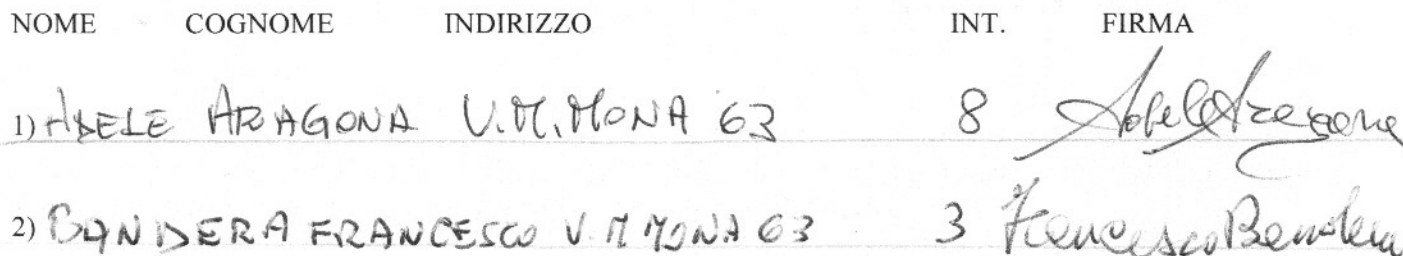 NOME COGNOME INDIRIZZO INT. FIRMA
1) ADELE ARAGONA V.M.MONA 63 8 Adele Aragona
2) BANDERA FRANCESCO V.M MONA 63 3 Francesco Bandera